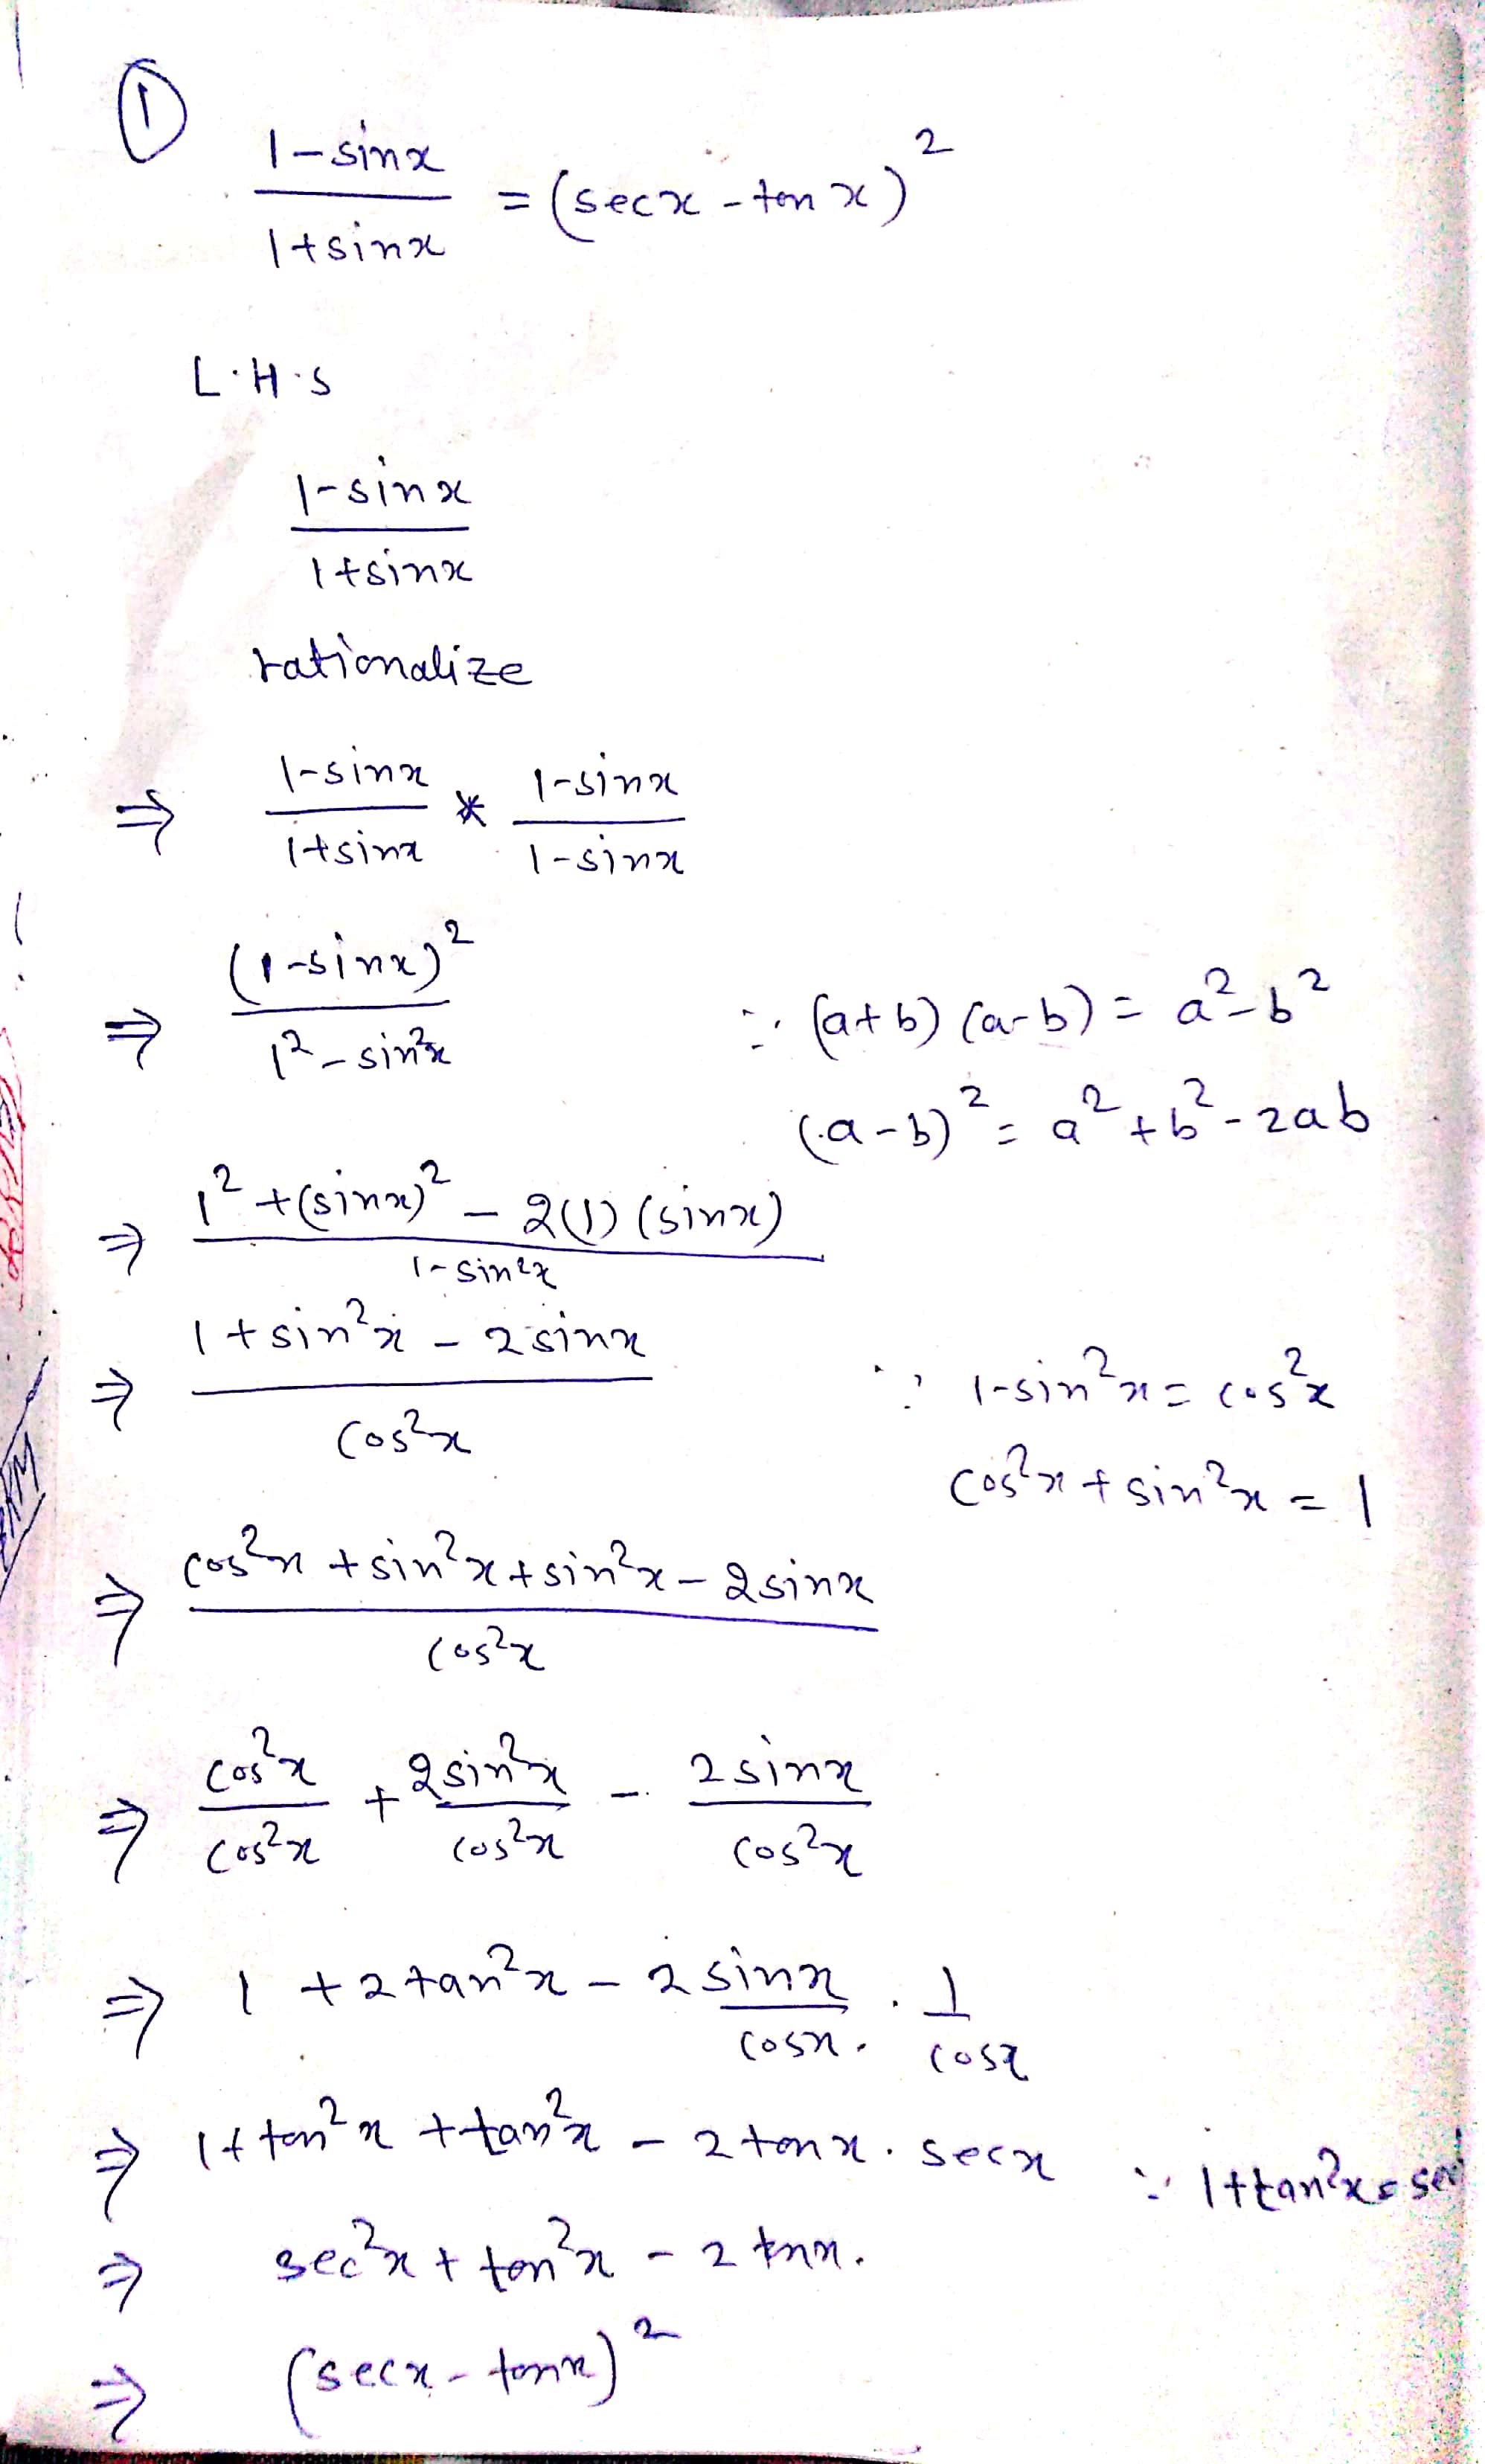 ①
1-sinx / 1+sinx = (secx - tanx)²
L.H.S
1-sinx / 1+sinx
rationalize
⇒ 1-sinx / 1+sinx * 1-sinx / 1-sinx
⇒ (1-sinx)² / 1²-sin²x ∵ (a+b)(a-b) = a²-b²
(a-b)² = a²+b²-2ab
⇒ 1²+(sinx)² - 2(1)(sinx) / 1-sin²x
⇒ 1+sin²x - 2sinx / cos²x ∵ 1-sin²x = cos²x
cos²x + sin²x = 1
⇒ cos²x + sin²x + sin²x - 2sinx / cos²x
⇒ cos²x / cos²x + 2sin²x / cos²x - 2sinx / cos²x
⇒ 1 + 2tan²x - 2 sinx / cosx . 1 / cosx
⇒ 1+tan²x + tan²x - 2tanx . secx ∵ 1+tan²x = sec
⇒ sec²x + tan²x - 2 tanx.
⇒ (secx - tanx)²